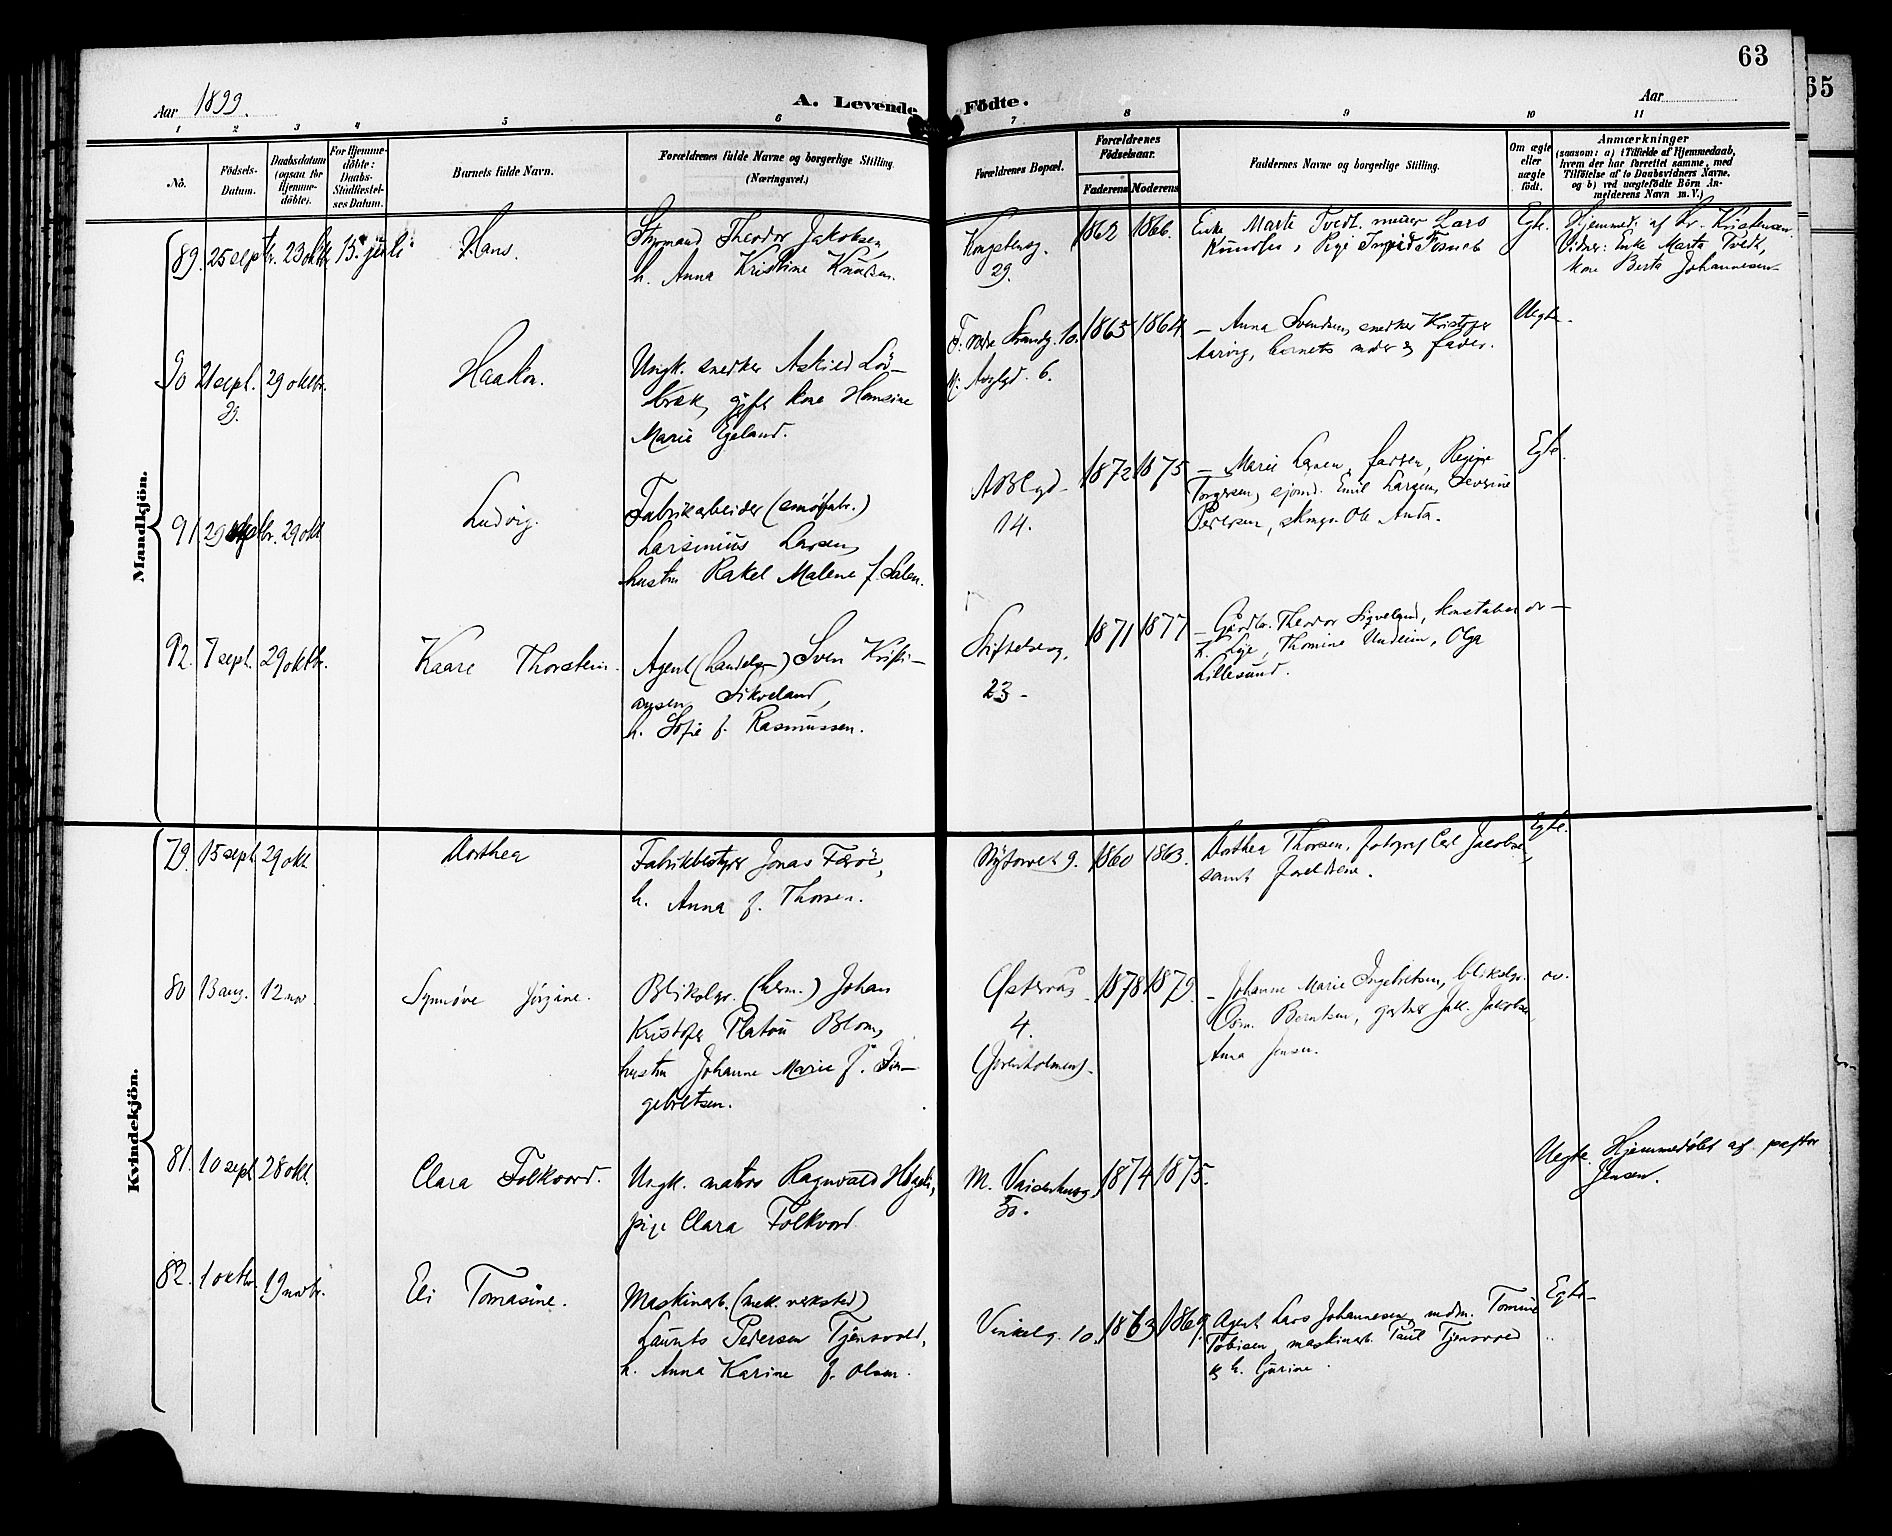 63
65
Aar 1899.
A. Levende Födte.
Aar
1 2 3 4 5 6 7 8 9 10 11
No.
Födsels-
Datum.
Daabsdatum
(ogsaa for
Hjemme-
döbte).
For Hjemme-
döbte:
Daabs-
Stadfæstel-
ses Datum.
Barnets fulde Navn.
Forældrenes fulde Navne og borgerlige Stilling.
(Næringsvei.)
Forældrenes Bopæl.
Forældrenes
Födselsaar.
Faderens Moderens
Faddernes Navne og borgerlige Stilling.
Om ægte
eller
uægte
födt.
Anmærkninger
(saasom: a) i Tilfælde af Hjemmedaab,
hvem der har forrettet samme, med
Tilföielse af to Daabsvidners Navne,
og b) ved uægtefödte Börn An-
melderens Navn m. V.)
Mandkjön.
89. 25 septr. 23 oktbr. 15. juli
Hans.
Styrmand Theodor Jakobsen,
h. Anna Kristine Knudsen.
Kongsteng.
29.
1862 1866.
Enke Marte Tvedt, murer Lars
Knudsen, Pige Ingrid
Egte.
Hjemmed. af Kristensen.
Vidner: Enke Marte Tvedt,
kone Berta Johannesen
90 21 sept. 29 oktbr.
Haakon.
Ungk. snedker Askild Löv-
bræk, gift kone Hansine
Marie Egeland.
F: nedre Strandg. 10.
M: 6.
1865 1864
- Anna Svendsen, snedker Kristofer
Aarvig, barnets moder & fader.
Uegte.
91 29 septbr. 29 okt
Ludvig.
Fabrikarbeider (smörfabr.)
Larsinius Larsen,
hustru Rakel Malene f. Salen.
14.
1872 1875
- Marie Larsen, Regine
Torgersen, sjömd. Emil Larsen, Severine
Pedersen, Ole
Egte.
92. 7 sept. 29 oktbr.
Kaare Thorstein.
Agent (handels-) Sven Kristi-
ansen Sikveland,
h. Sofie f. Rasmussen.
Stiftelsesg.
23-
1871 1877
- Gårdbr. Theodor Sigveland, konstabel
Lye, Thomine Undheim, Olga
Lillesund.
Kvindekjön.
79. 15 sept 29 okt
Dorthea
Fabrikbestyrer Jonas Færöe,
h. Anna f. Thorsen.
Nytorvet 9.
1860 1863.
Dorthea Thorsen, fotograf Carl Jacobsen,
samt forældrene.
Egte.
80 13 aug. 12 nov.
Synnöve Jörgine.
Blikslgr. (herm.) Johan
Kristofer Platou Blom,
hustru Johanne Marie f. In-
gebretsen.
Østervåg
4.
(Jorenholmen)-
1878 1879.
- Johanne Marie Ingebretsen, blikslgr.
Berntsen, Jak. Jakobsen,
Anna Jensen.
81. 10 sept 28 okt.
Clara Folkvord.
Ungk. matros Ragnvald
pige Clara Folkvord
M.
30.
1874 1875.
Uegte.
Hjemmedöbt af pastor
Jensen.
82. 1 oktbr. 19 novbr.
Eli Tomasine.
Maskinarb. (mek. verksted)
Launts Pedersen Tjensvold,
h. Anna Karine f. Olsen.
Vinkelg. 10.
1863 1869.
Agent Lars Johannesen, madm. Tomine
Tobisen, maskinarb. Paul Tjensvold
& h. Gurine.
Egte-